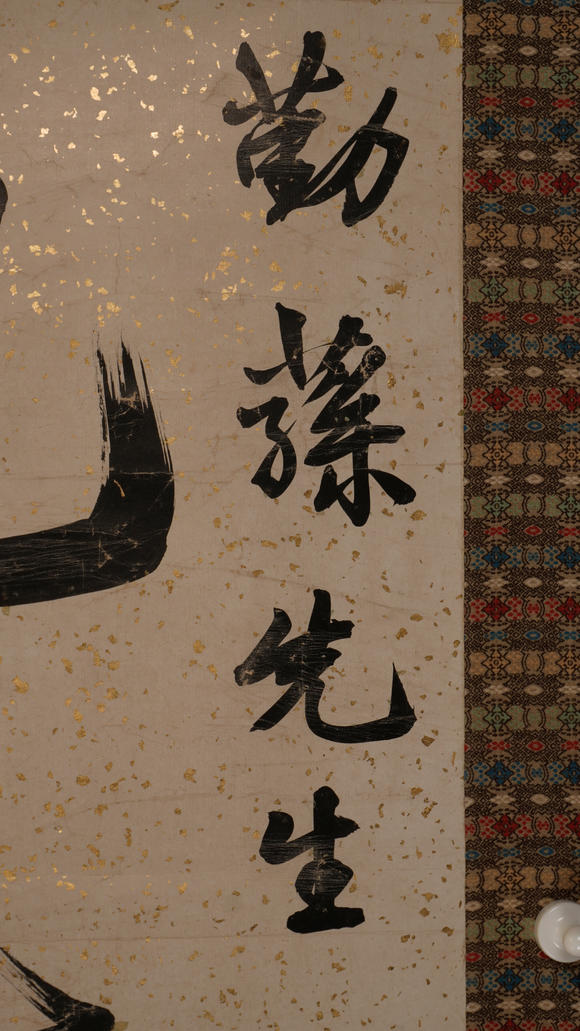 勤蓀先生